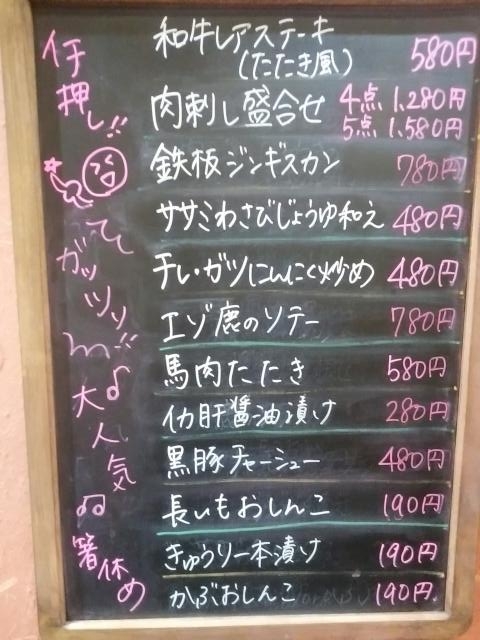 和牛レアステーキ
(たたき風) 580円
肉刺し盛合せ 4点 1,280円
5点 1,580円
鉄板ジンギスカン 780円
ササミわさびじょうゆ和え 480円
チレ・ガツにんにく炒め 480円
エゾ鹿のソテー 780円
馬肉たたき 580円
イカ肝醤油漬け 280円
黒豚チャーシュー 480円
長いもおしんこ 190円
きゅうり一本漬け 190円
かぶおしんこ 190円
イチ押し!!
ガッツリ!!
大人気
箸休め